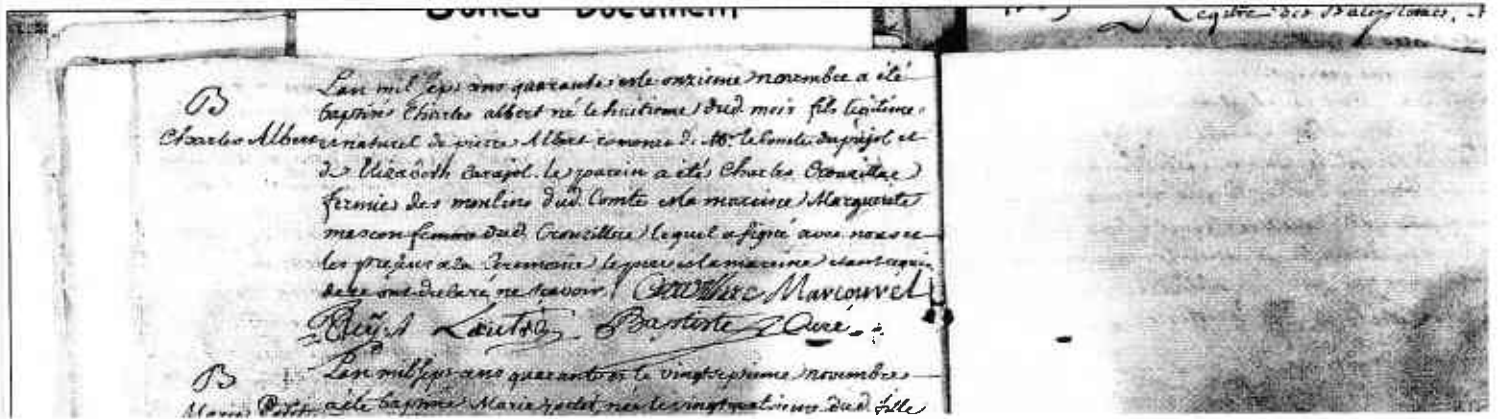 Document
Registre des
B
Charles Albert
L'an mil sept cens quarante et le onzieme novembre a été
baptisé Charles albert né le huitieme dud. mois fils legitime
et naturel de pierre Albert de Mr. le Comte du pujol et
de Elizabeth Carajol. le parein a été Charles Crouzillac
fermier des moulins dud. Comte et la mareine Marguerite
mascon femme dud. Crouzillac lequel a signé avec nous et
les presens a la Ceremonie le pere et la mareine
de ce ont declaré ne scavoir. Marcouvel
Baptiste Curé
B
L'an mil sept cens quarante et le vingt septieme novembre
a été baptisée Marie née le vingt dud. fille